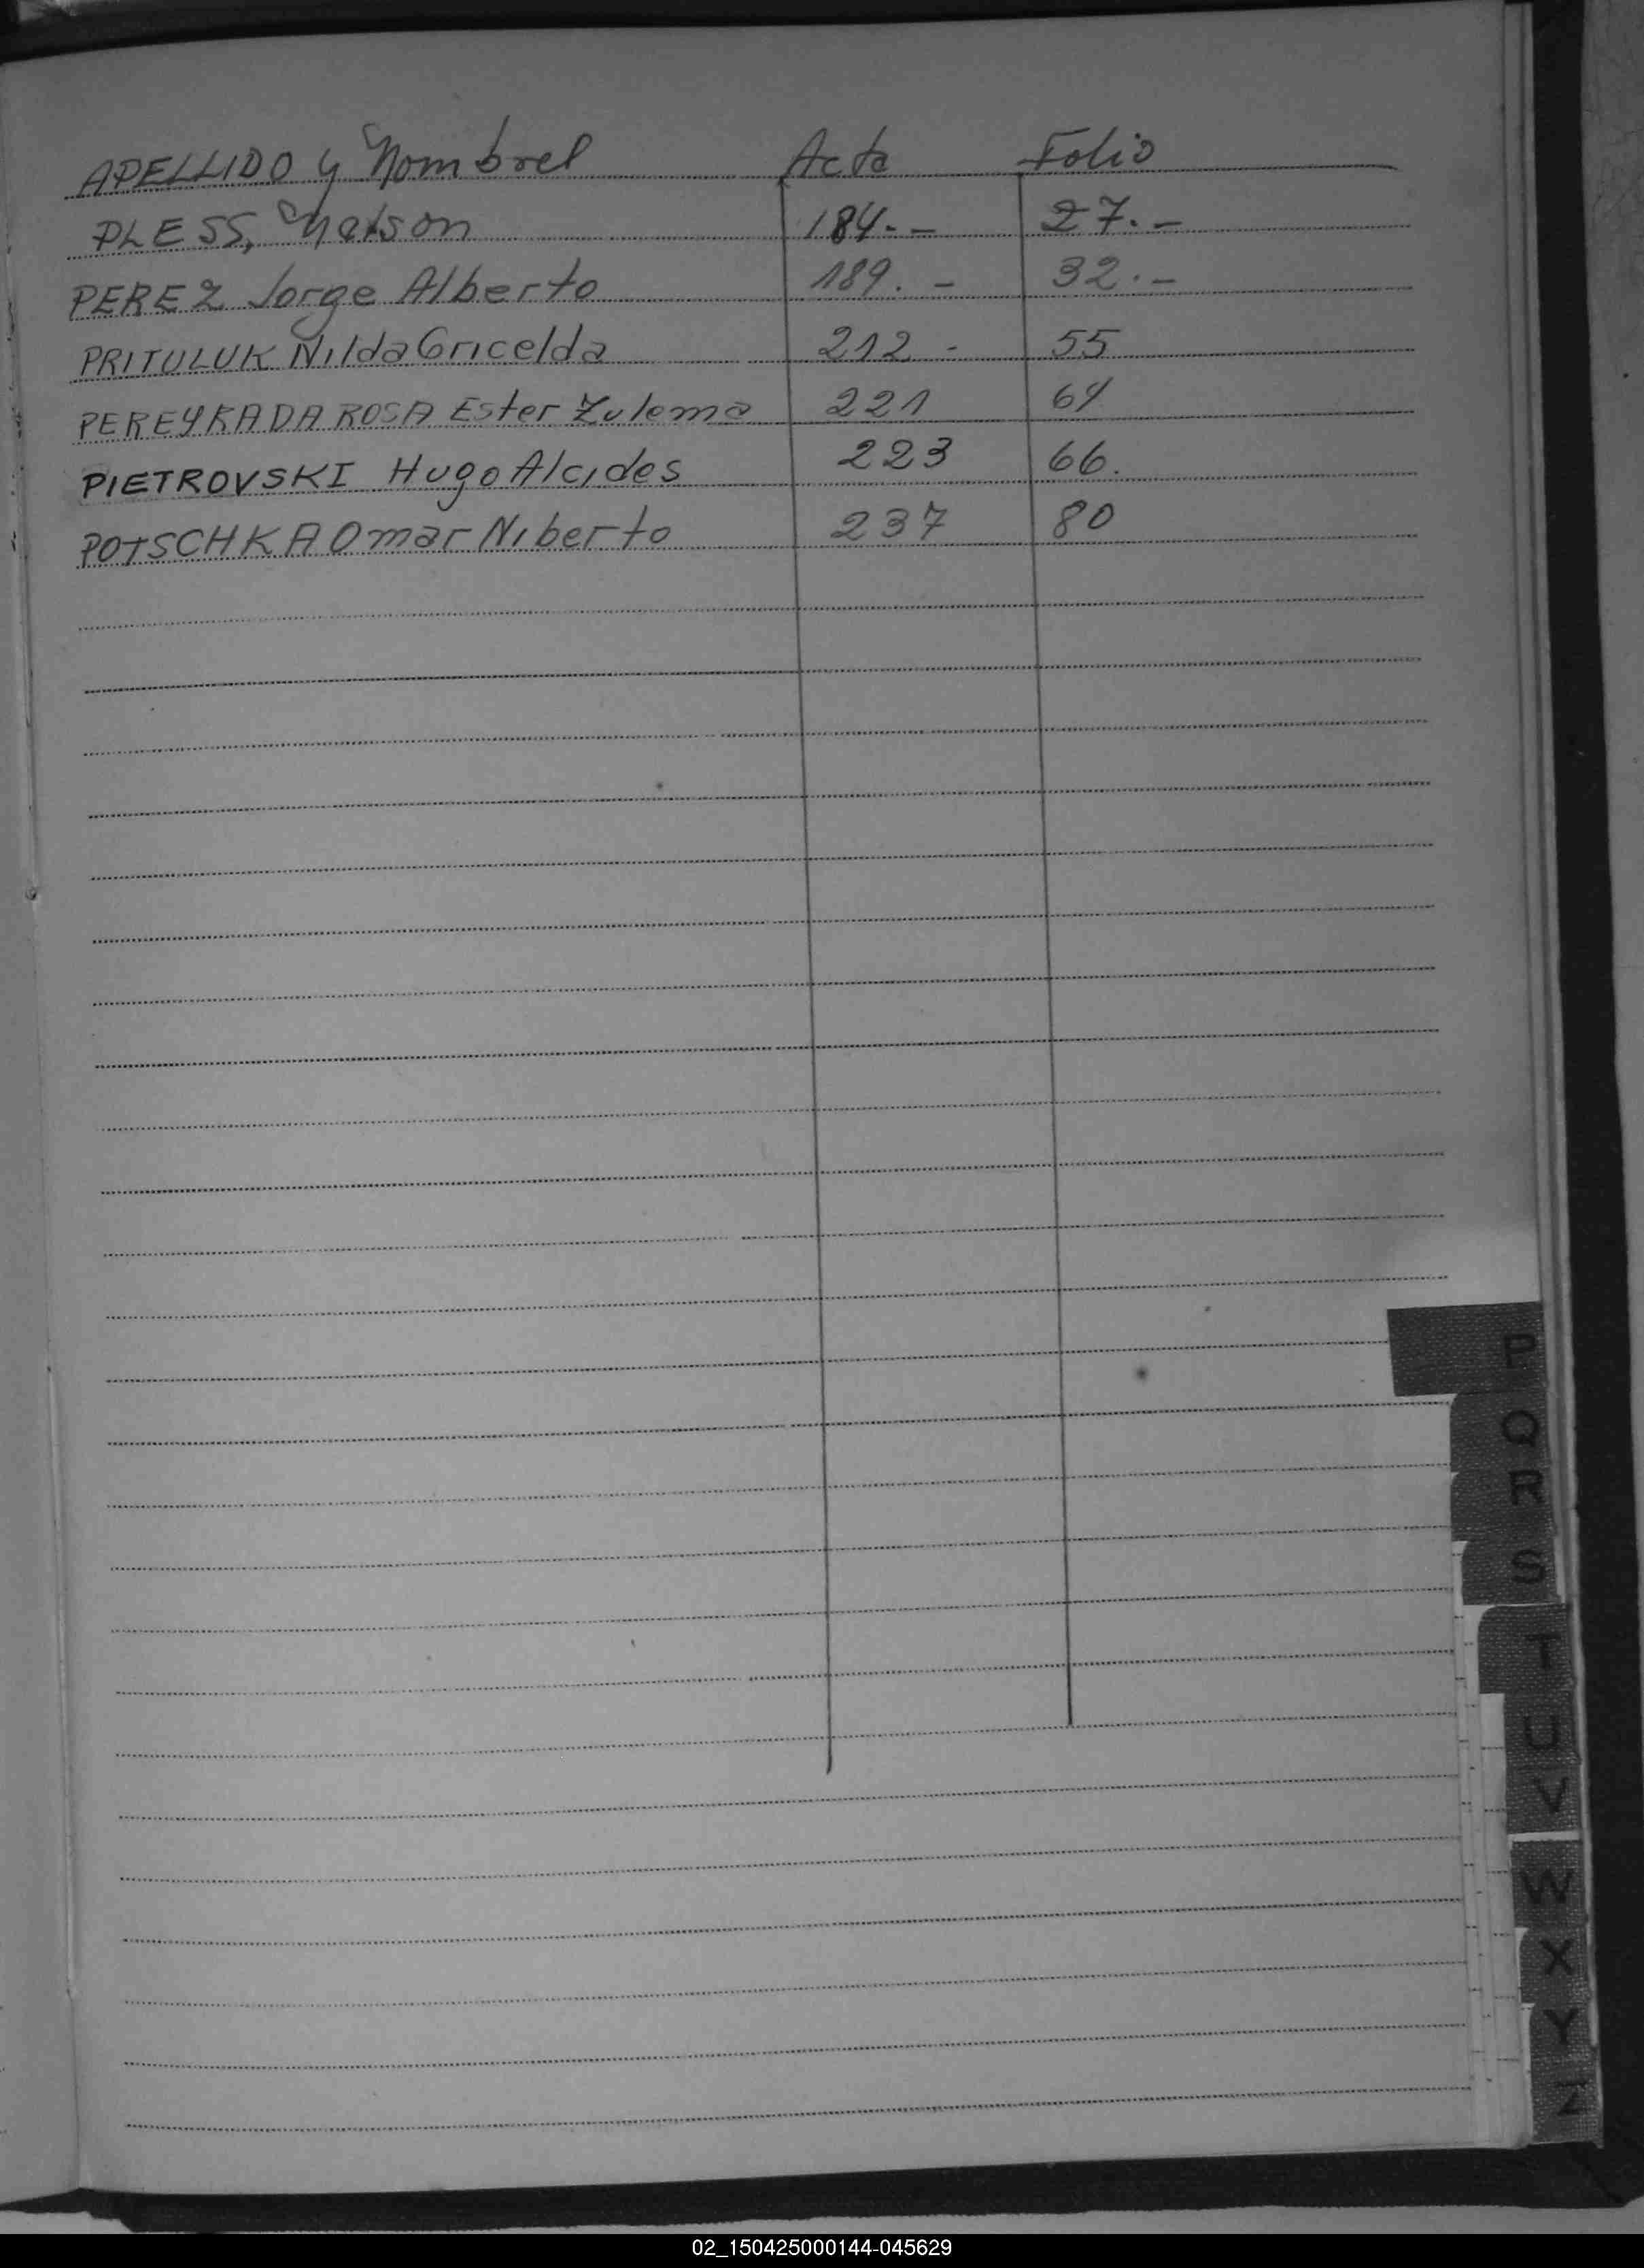 APELLIDO y Nombrel Acta Folio
PLESS, Nelson 184.- 27.-
PEREZ Jorge Alberto 189.- 32.-
PRITULUK Nilda Gricelda 212- 55
PEREYRA DA ROSA Ester Zulema 221 64
PIETROVSKI Hugo Alcides 223 66.
POTSCHKA Omar Niberto 237 80
P
Q
R
S
T
U
V
W
X
Y
Z
02_150425000144-045629